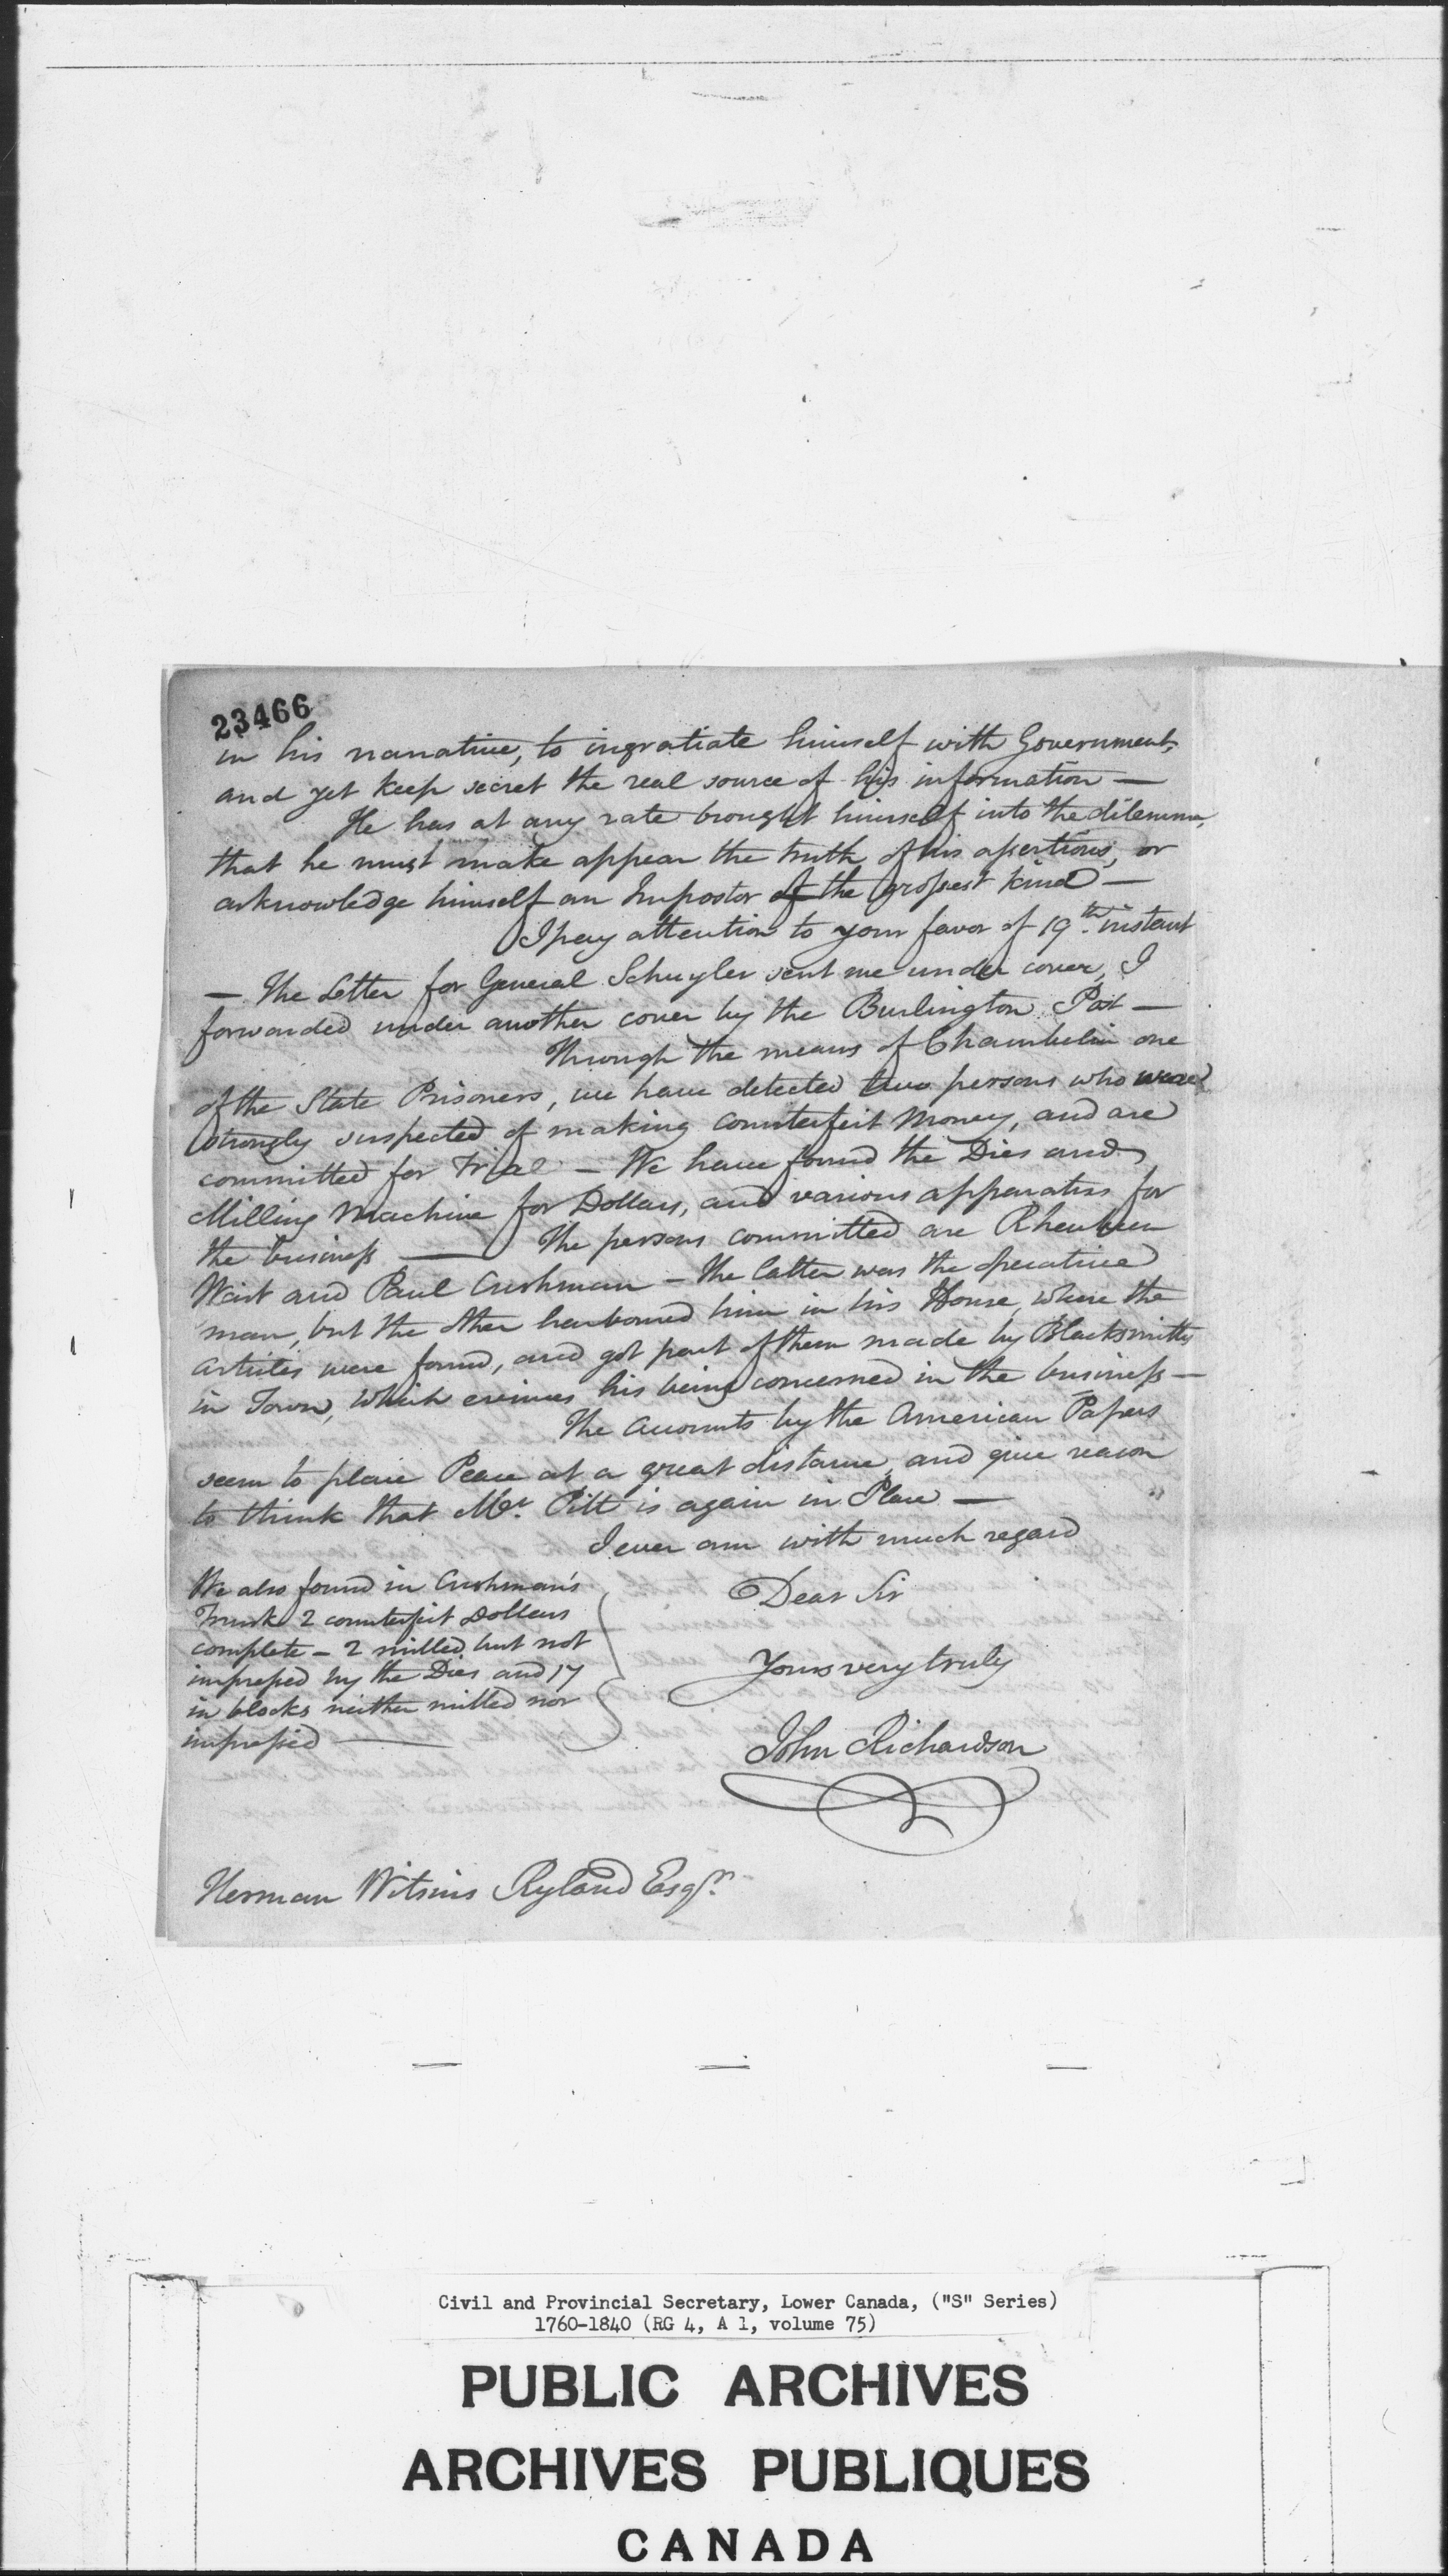 23466
in his narrative, to ingratiate himself with Government,
and yet keep secret the real source of his information —
He has at any rate brought himself into the dilemma,
that he must make appear the truth of his assertions, or
acknowledge himself an Impostor of the grossest kind —
I pay attention to your favor of 19th. instant
— The Letter for General Schuyler sent me under cover, I
forwarded under another cover by the Burlington Post —
Through the means of Chamberlin one
of the State Prisoners, we have detected two persons who were
strongly suspected of making Counterfeit Money, and are
committed for Trial — We have found the Dies and
Milling Machine for Dollars, and various apparatus for
the business — The persons committed are Rheuben
Wait and Paul Cushman — the latter was the operative
man, but the other harboured him in his House, where the
articles were found, and got part of them made by Blacksmiths
in Town, which evinces his being concerned in the business —
The Accounts by the American Papers
seem to place Peace at a great distance, and give reason
to think that Mr. Pitt is again in Place —
I ever am with much regard
Dear Sir
Yours very truly
John Richardson
We also found in Cushman's
Trunk 2 counterfeit Dollars
complete — 2 milled but not
impressed by the Dies and 17
in blocks neither milled nor
impressed —
Herman Witsius Ryland Esqr.
Civil and Provincial Secretary, Lower Canada, ("S" Series)
1760-1840 (RG 4, A 1, volume 75)
PUBLIC ARCHIVES
ARCHIVES PUBLIQUES
CANADA